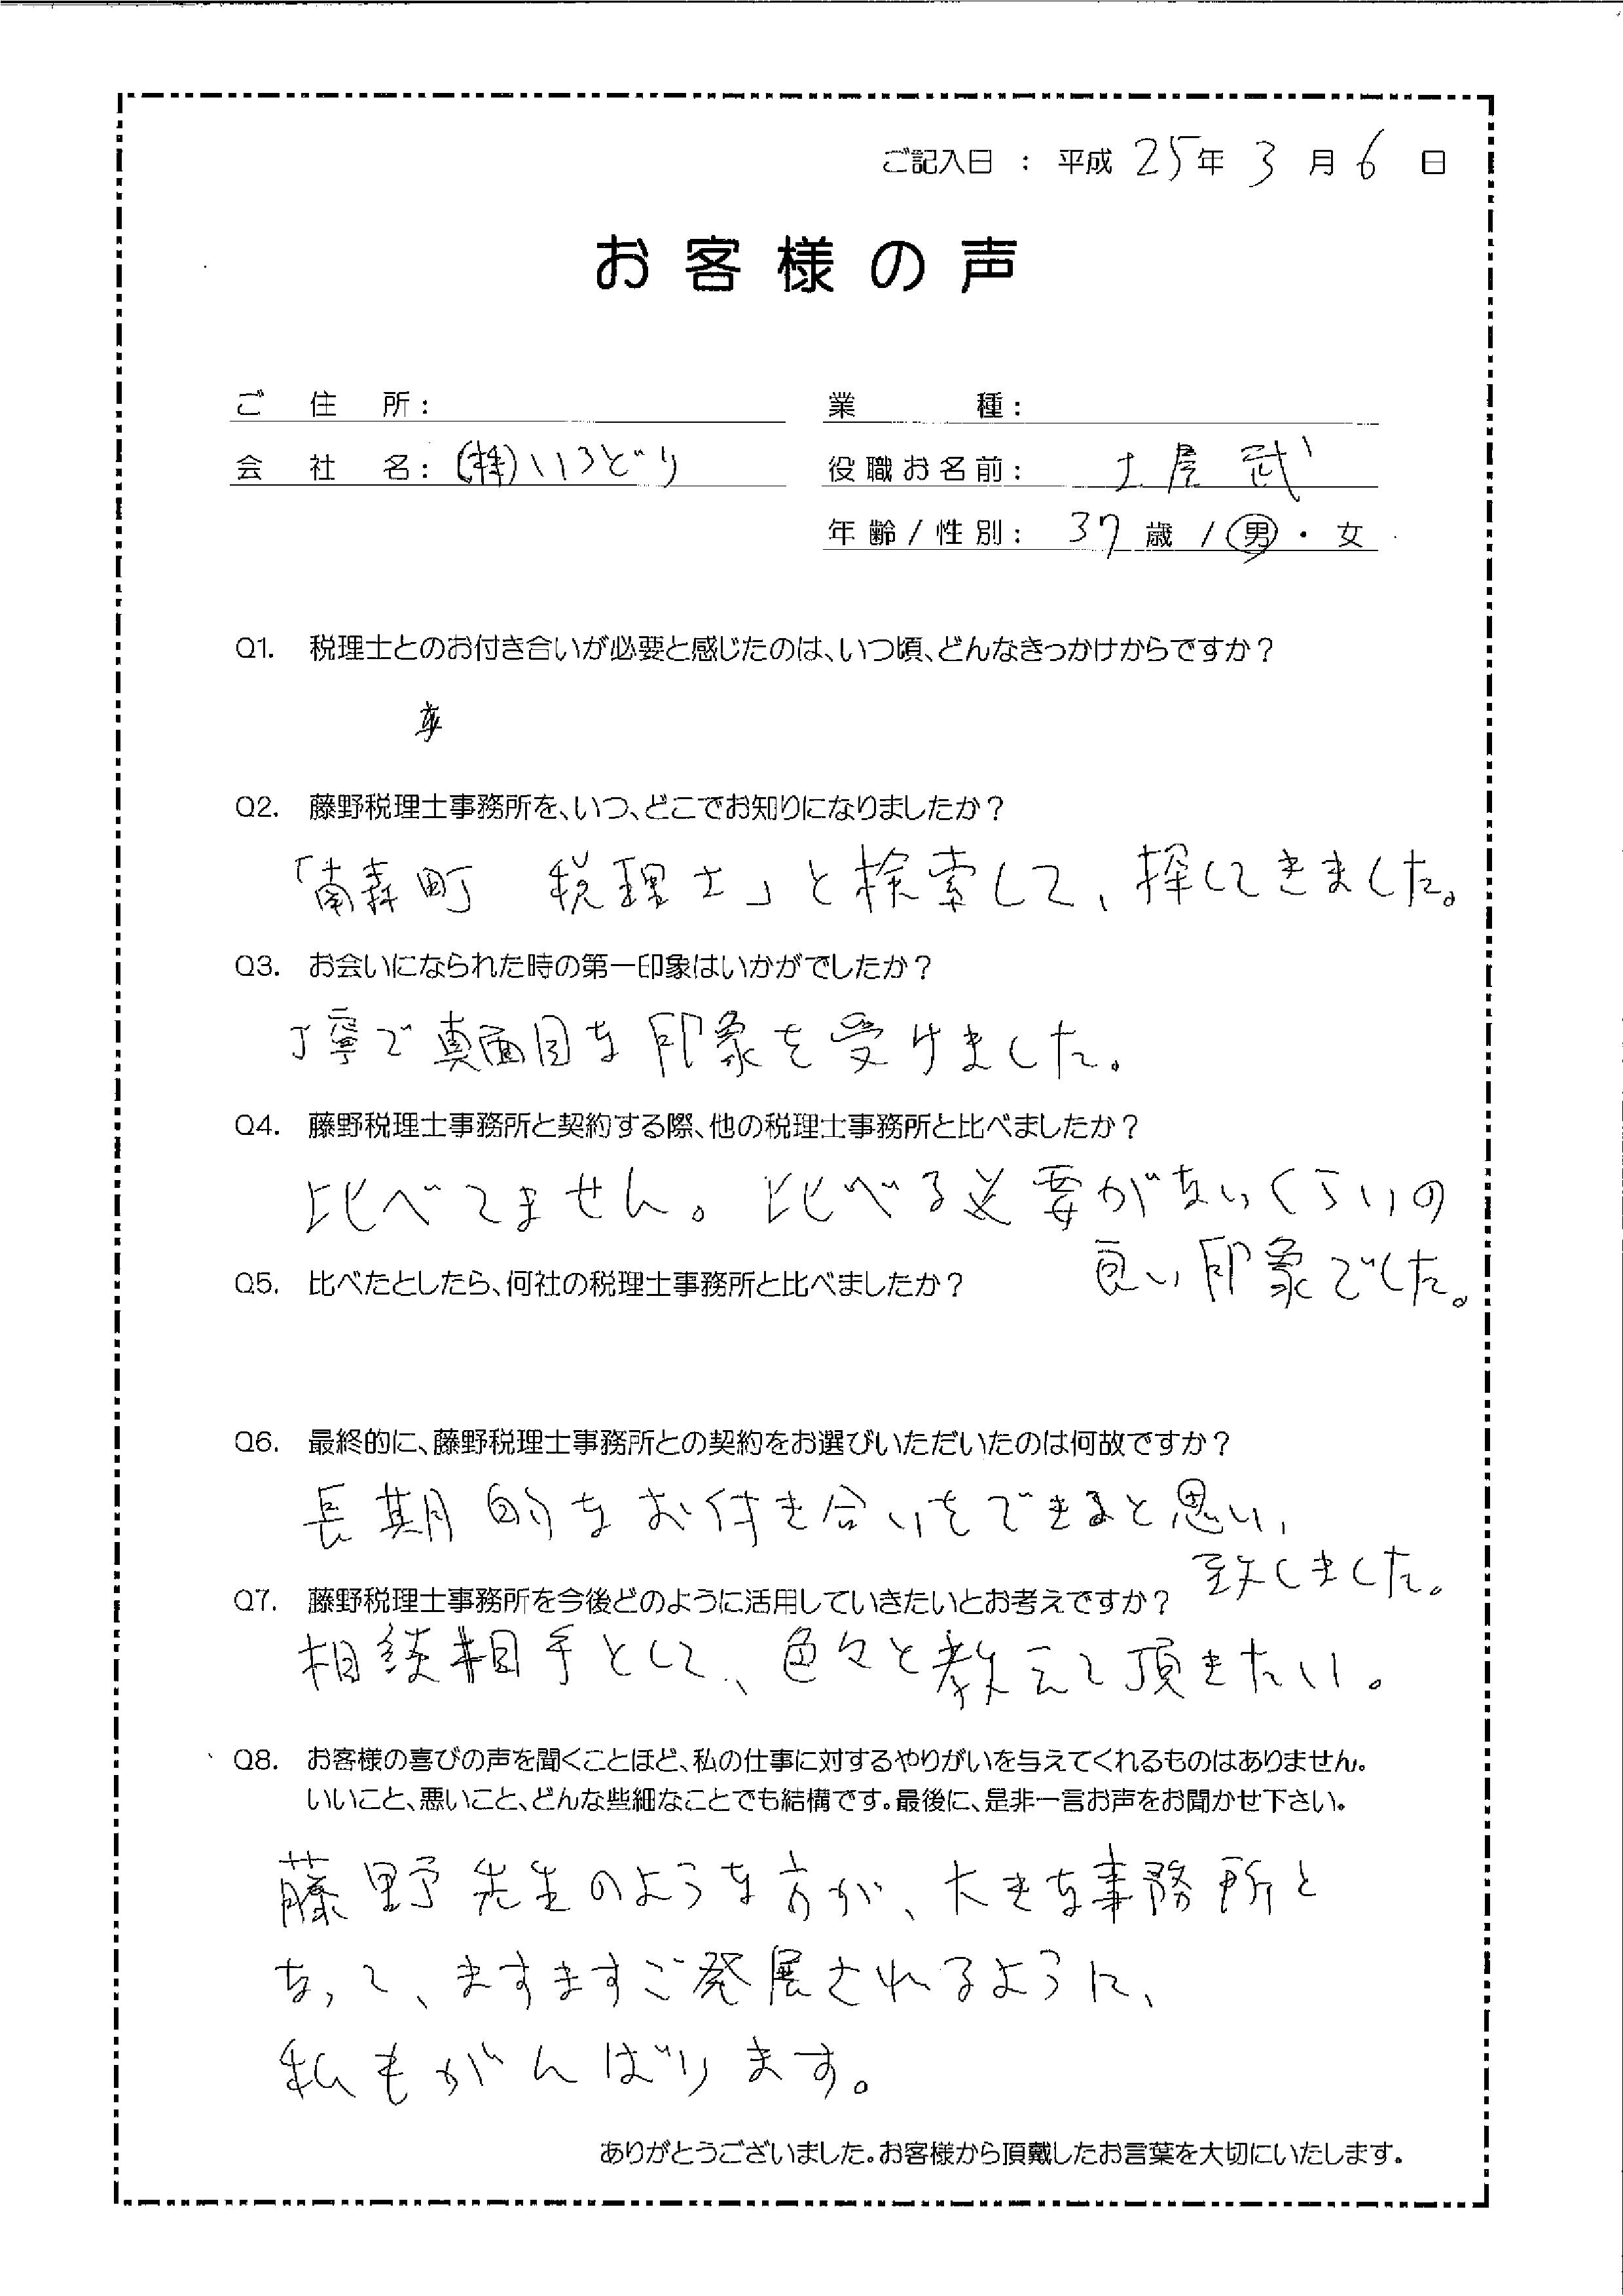 ご記入日 : 平成 25年 3月 6日
お客様の声
ご住所:
業種:
会社名: (株)いろどり
役職お名前: 土屋 武
年齢/性別: 37歳 / 男・女
Q1. 税理士とのお付き合いが必要と感じたのは、いつ頃、どんなきっかけからですか?
Q2. 藤野税理士事務所を、いつ、どこでお知りになりましたか?
「南森町 税理士」と検索して、探してきました。
Q3. お会いになられた時の第一印象はいかがでしたか?
丁寧で真面目な印象を受けました。
Q4. 藤野税理士事務所と契約する際、他の税理士事務所と比べましたか?
比べてません。比べる必要がないくらいの
良い印象でした。
Q5. 比べたとしたら、何社の税理士事務所と比べましたか?
Q6. 最終的に、藤野税理士事務所との契約をお選びいただいたのは何故ですか?
長期的なお付き合いをできると思い、
致しました。
Q7. 藤野税理士事務所を今後どのように活用していきたいとお考えですか?
相談相手として、色々と教えて頂きたい。
Q8. お客様の喜びの声を聞くことほど、私の仕事に対するやりがいを与えてくれるものはありません。
いいこと、悪いこと、どんな些細なことでも結構です。最後に、是非一言お声をお聞かせ下さい。
藤野先生のような方が、大きな事務所と
なって、ますますご発展されるように、
私もがんばります。
ありがとうございました。お客様から頂戴したお言葉を大切にいたします。